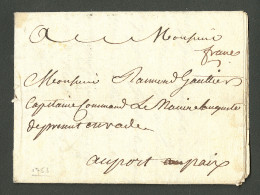 A Monsieur
franc
Monsieur Raimond Gautier
Capitaine Command Le Navire Lauguste
de present en rade
au port au paix
1763